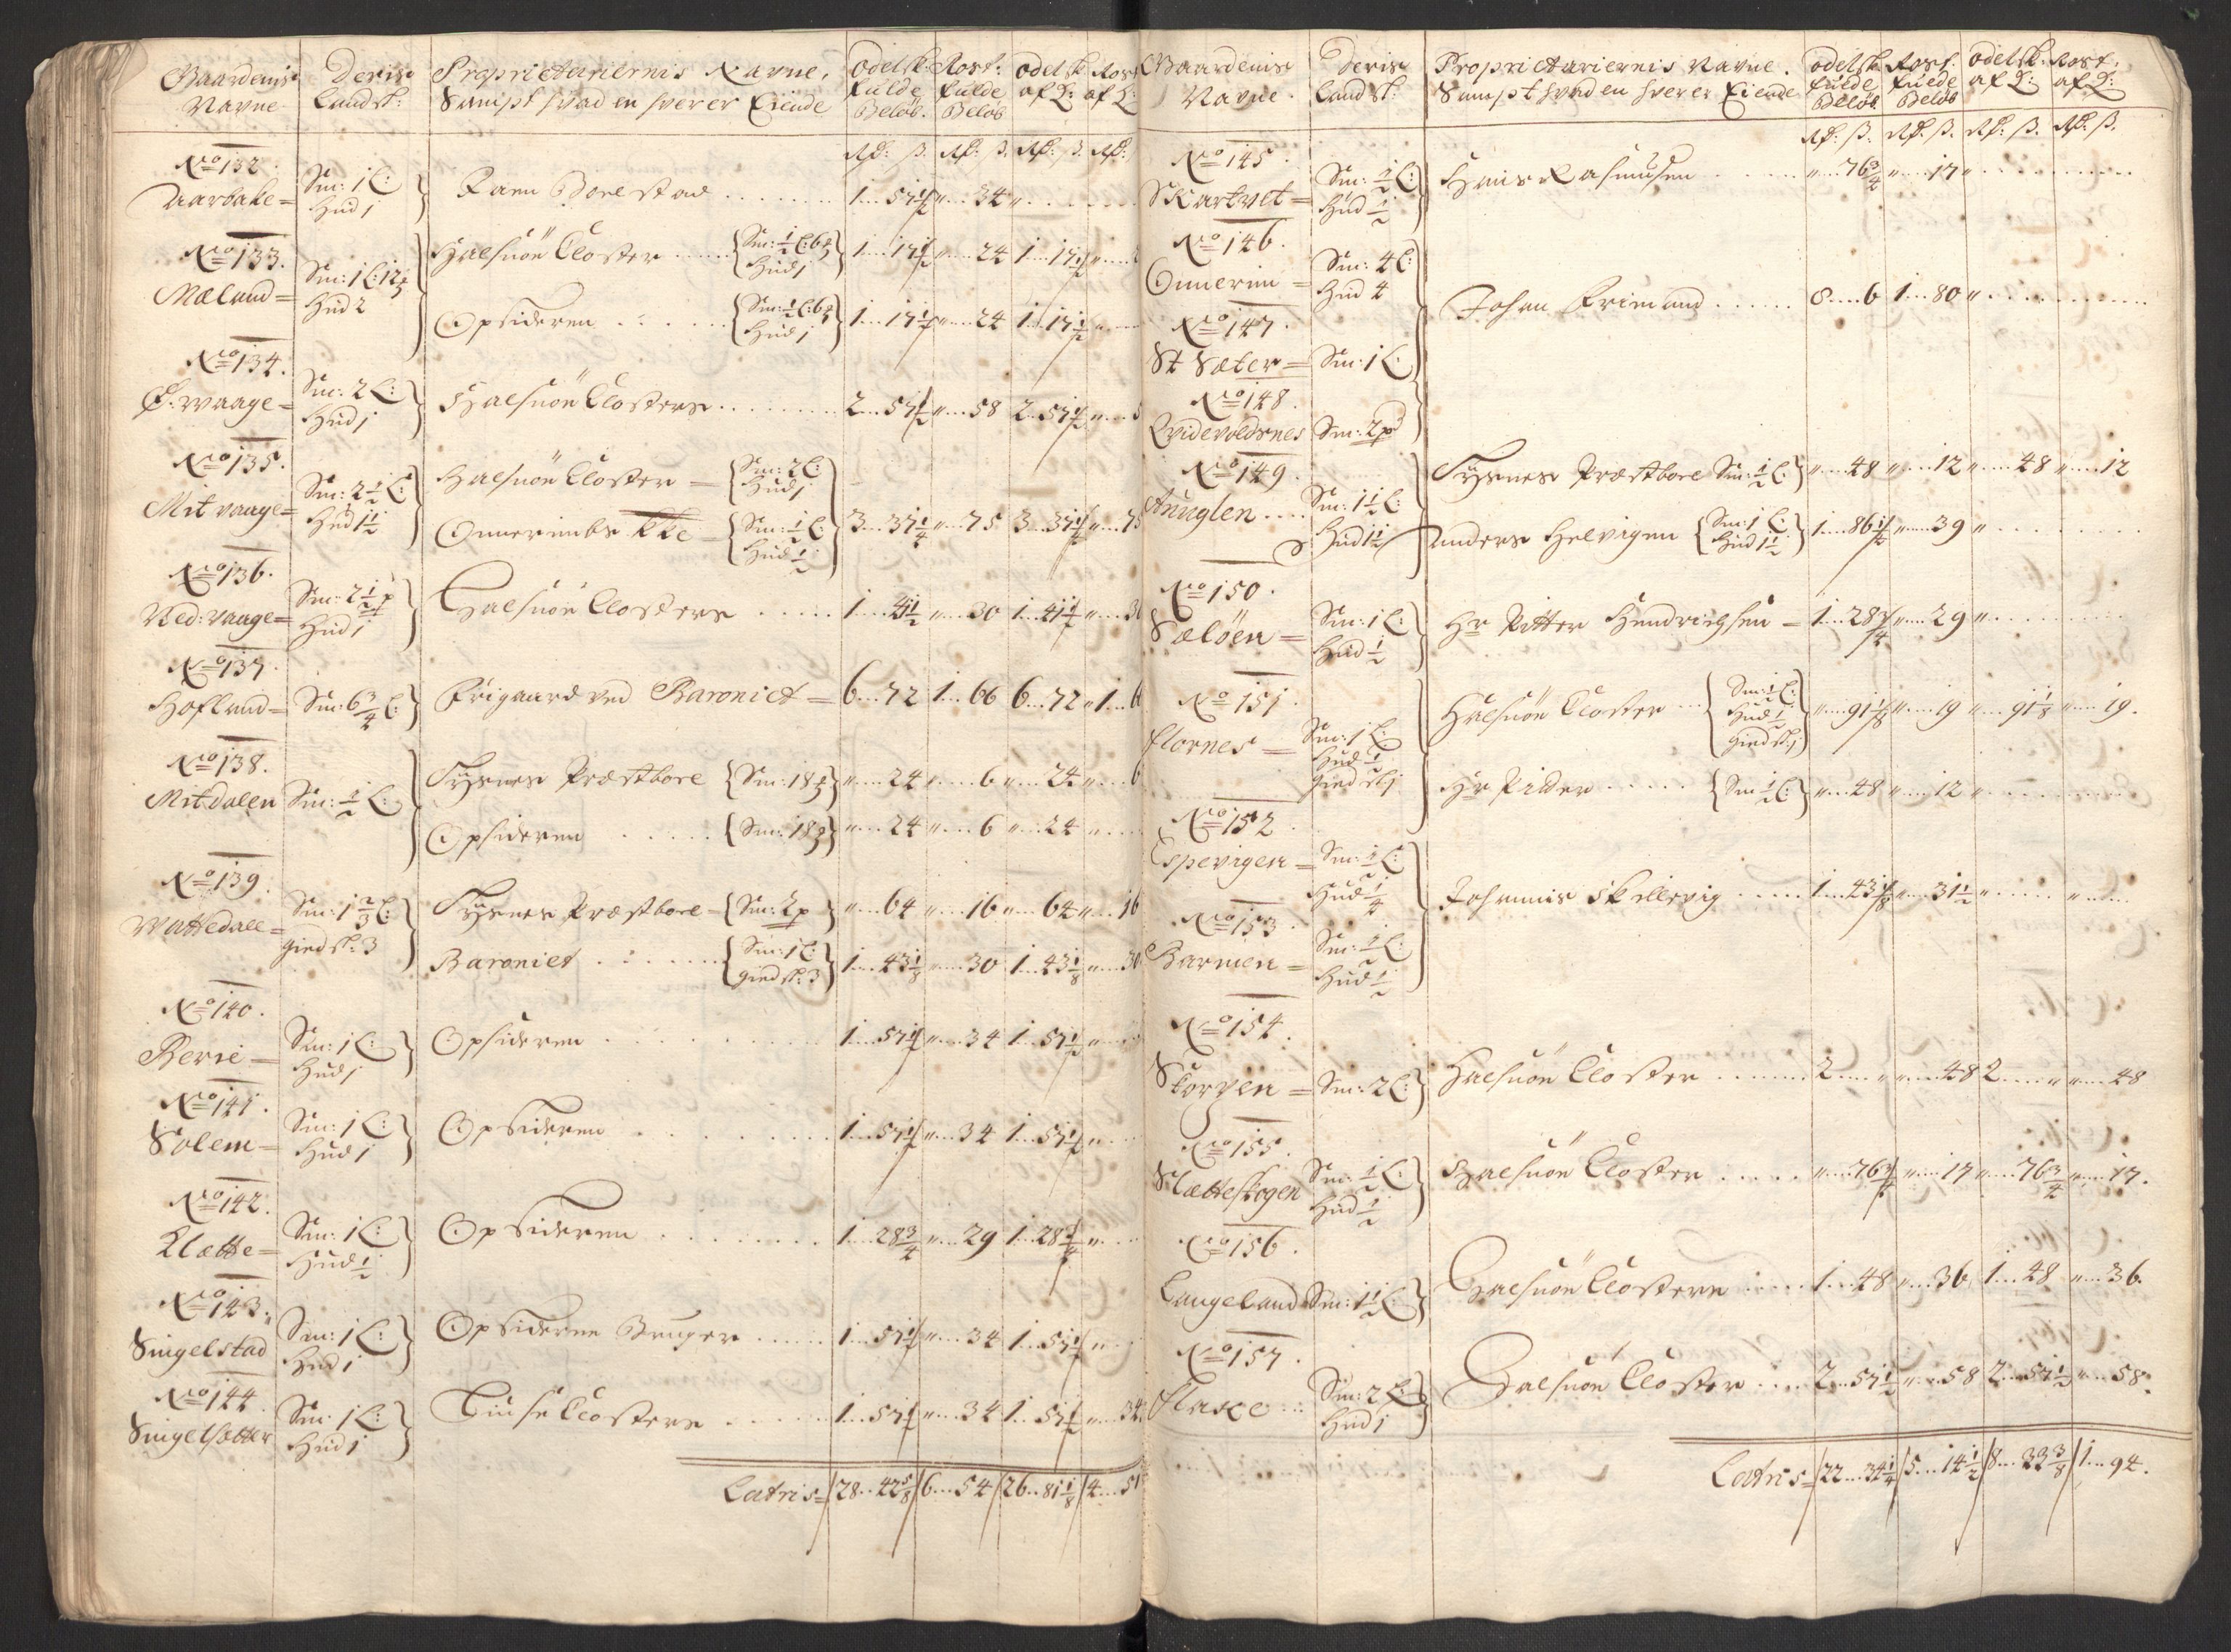 Gaardenis Navne
Deris Landsk:
Proprietariernis Navne, Sampt hvad en hver er Eiende
odelsk: fulde Beløb.
Rost: fulde Beløb
odelsk af L:
Rost af L:
Rd: ß. Rd: ß. Rd: ß. Rd:
No 132.
Aarbake = Sm: 1 L: Hud 1 } Faen Borestad 1 57½ " 34 "
No 133.
Mæland = Sm: 1 L: 12 Hud 2
Halsnöe Closter {Sm: ½ L: 6 Hud 1} 1 17½ " 24 1 17½ "
Opsideren {Sm: ½ L: 6 Hud 1} 1 17½ " 24 1 17½ "
No 134.
Ø. Waage = Sm: 2 L: Hud 1 } Halsnöe Closter 2 57½ " 58 2 57½ "
No 135.
Mit vaage = Sm: 2½ L: Hud 1½
Halsnöe Closter = {Sm: 2 L: Hud 1
Onnerimbs Kke = {Sm: ½ L: Hud ½} 3 37¼ " 75 3 37¼ " 75
No 136.
Ned: vaage = Sm: 2½ p Hud 1 } Halsnöe Closter 1 41½ " 30 1 41½ " 30
No 137.
Hofland = Sm: 6¾ L: } Frigaard ved Baroniet = 6 72 1 66 6 72 " 1 6
No 138.
Mitdalen Sm: ½ L:
Tysnes Præstbore {Sm: 18} " 24 " 6 " 24 " 6
Opsideren {Sm: 18} " 24 " 6 " 24 "
No 139.
Wattedall = Sm: 1⅔ L: giedsk: 3
Tysnes Præstbore {Sm: 2p} " 64 " 16 " 64 " 16
Baroniet {Sm: 1 L: giedsk: 3} 1 43⅛ " 30 1 43⅛ " 30
No 140.
Berie = Sm: 1 L: Hud 1 } Opsideren 1 57½ " 34 1 57½ "
No 141.
Solem = Sm: 1 L: Hud 1 } Opsideren 1 57½ " 34 1 57½ "
No 142.
Klætte = Sm: 1 L: Hud ½ } Opsideren 1 28¾ " 29 1 28¾ "
No 143.
Singelstad Sm: 1 L: Hud 1 } Opsideren Bruger 1 57½ " 34 1 57½ "
No 144.
Singelsætter Sm: 1 L: Hud 1 } Liuse Closter 1 57½ " 34 1 57½ " 34
Latris = 28 42⅝ 6 54 26 81⅛ 4 51
Gaardenis Navne
Deris Landsk:
Proprietariernis Navne. Sampt hvad en hver er Eiende
odelsk: fulde Beløb
Rost: fulde Beløb
odelsk: af L:
Rost: af L:
Rd: ß. Rd: ß. Rd: ß. Rd: ß.
No 145.
Skartvet = Sm: ½ L: Hud ½ } Hans Rasmusen " 76¾ " 17 "
No 146.
Onnerim = Sm: 4 L: Hud 4
Johan Friemand 8 6 1 80 "
No 147.
St Sæter = Sm: 1 L:
No 148.
Qvidevoldsnes Sm: 2p
No 149.
Anuglen Sm: 1½ L: Hud 1½
Tysnes Præstbore Sm: ½ L: } " 48 " 12 " 48 " 12
Anders Helvigen {Sm: 1 L: Hud 1½} 1 86½ " 39 "
No 150.
Sæløen = Sm: 1 L: Hud ½ } Hr Pitter Hendrichsen = 1 28¾ " 29 "
No 151.
Flornes = Sm: 1 L: Hud ½ giedsk 1
Halsnöe Closter {Sm: ½ L: Hud ½ giedsk: 1} " 91⅛ " 19 " 91⅛ " 19.
Hr Pitter {Sm ½ L:} " 48 " 12 "
No 152.
Espevigen = Sm: ½ L: Hud ¼
Johannis Skellevig 1 43⅛ " 31½ "
No 153.
Harmen = Sm: ½ L: Hud ½
No 154.
Skorpen = Sm: 2 L: } Halsnöe Closter 2 " " 48 2 " " 48
No 155.
Slætteskogen Sm: ½ L: Hud ½ } Halsnöe Closter " 76¾ " 17 " 76¾ " 17.
No 156.
Langeland Sm: 1½ L: } Halsnöe Closter 1 48 " 36 1 48 " 36.
No 157.
Flaxe Sm: 2 L: Hud 1 } Halsnöe Closter 2 57½ " 58 2 57½ " 58.
Latris = 22 34¼ 5 14½ 8 33⅜ 1 94.